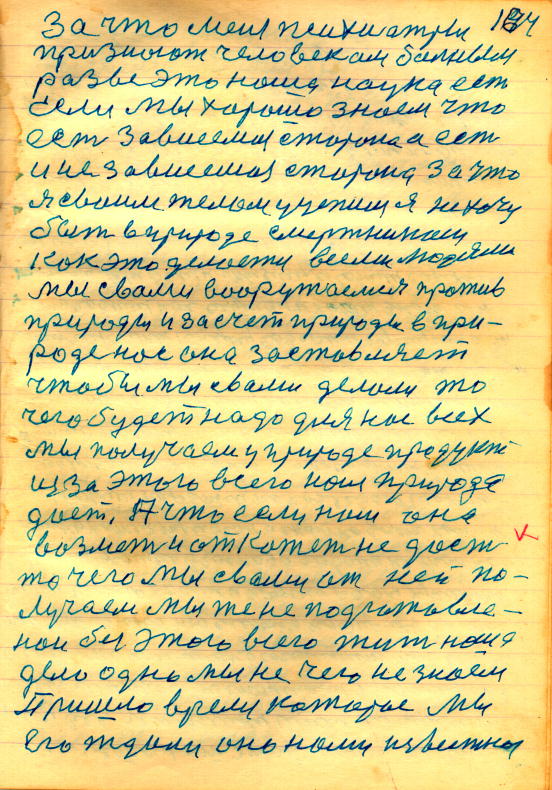 184
За что меня психиатры
признают человеком больным
разве это наша наука ест
если мы хорошо знаем что
ест зависемая сторона а ест
и не зависемая сторона За что
я своим телом учении я не хочу
быт в природе смертником
как это делается всеми людями
мы с вами вооружаемся против
природы и за счет природы в при-
роде нас она заставляет
чтобы мы с вами делали то
чего будет надо для нас всех
мы получаем у природе продукт
из за этого всего нам природа
дает. А что если нам она
возмет и откажет не даст
то чего мы с вами от ней по-
лучаем мы же не подготовле-
ной без этого всего жит наша
дело одно мы не чего не знаем
Пришло время которое мы
его ждали оно нами известная